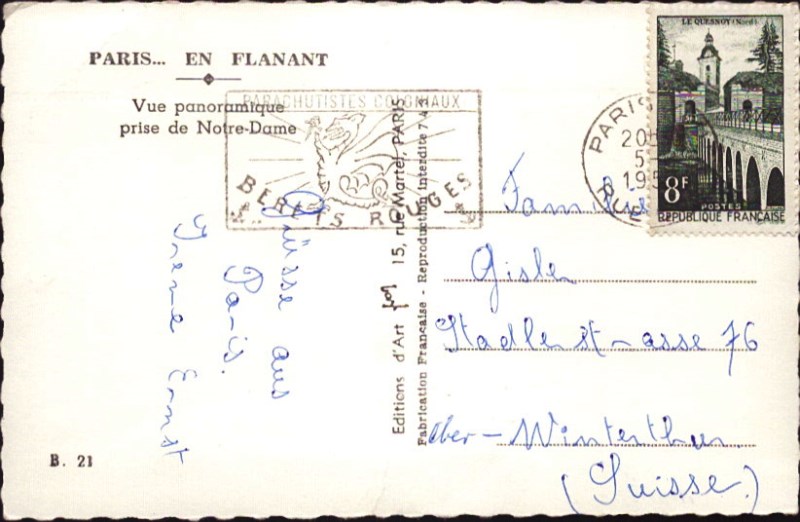 PARIS... EN FLANANT
Vue panoramique
prise de Notre-Dame
PARACHUTISTES COLONIAUX
BERETS ROUGES
PARIS
LE QUESNOY (Nord)
8F
POSTES
REPUBLIQUE FRANÇAISE
Grüsse aus
Paris.
Irene Ernst
Editions d'Art 15, rue Martel, PARIS
Fabrication Française - Reproduction Interdite
Familie
Gisler
Stadlerstrasse 76
Ober-Winterthur
(Suisse.)
B. 21